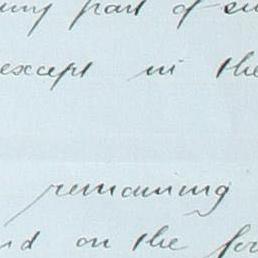 any part of
except in the
remaining
and on the